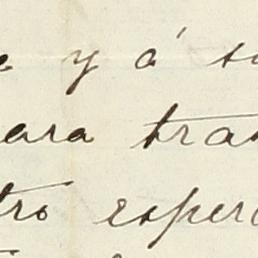 y á
ara tra
tro esper